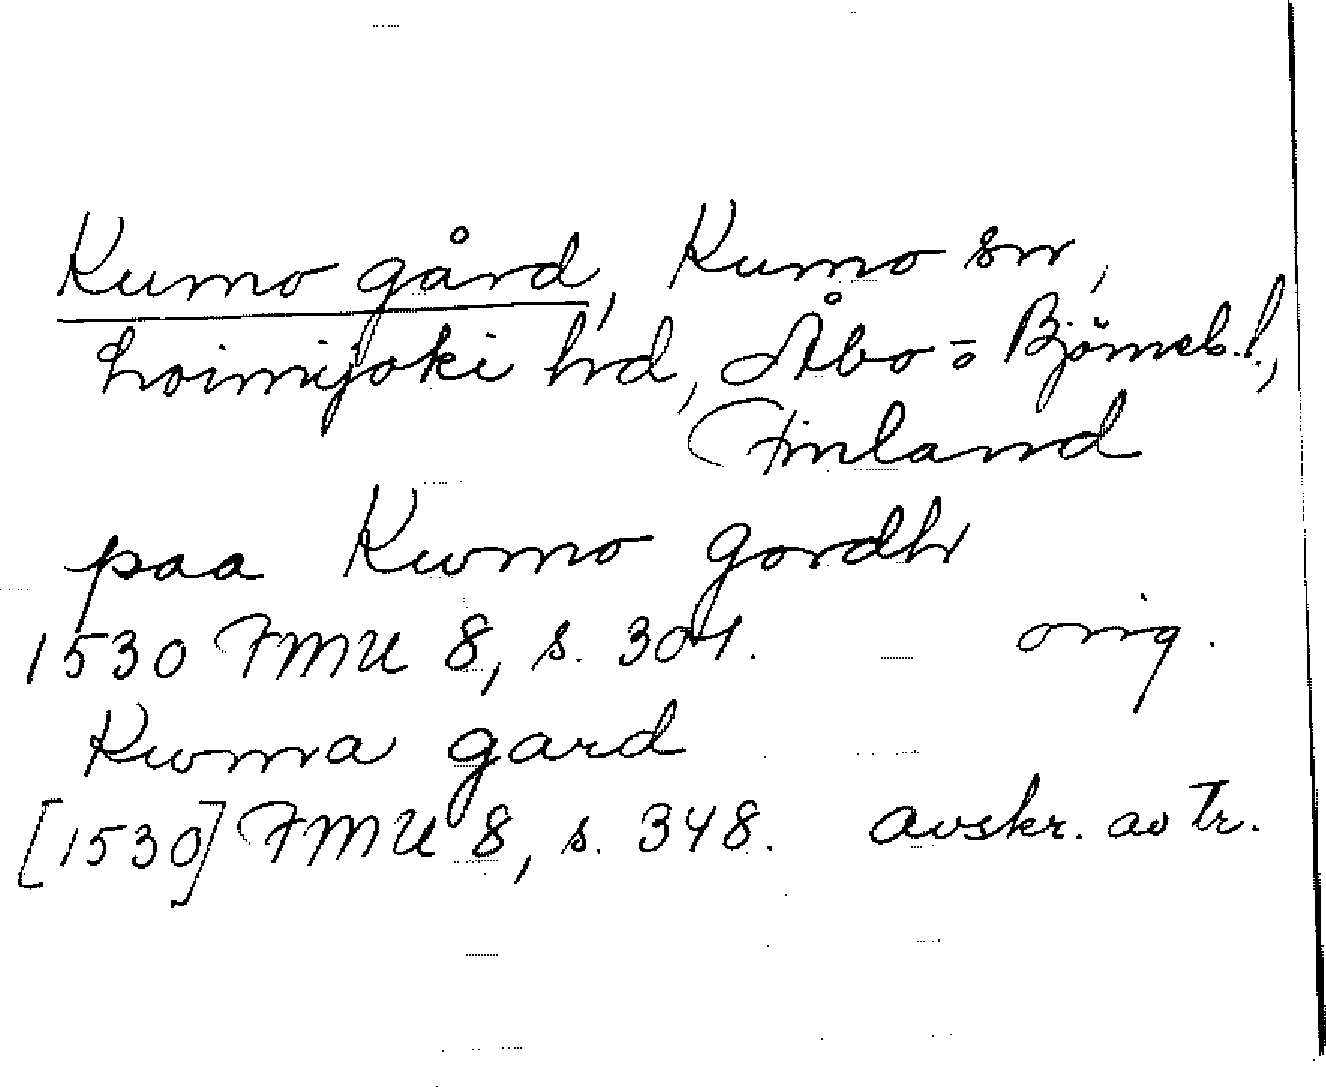 Kumo gård, Kumo sn,
Loimijoki hd, Åbo = Björneb. l.,
Finland
paa Kwmo gordh
1530 FMU 8, s. 304. orig.
Kwma gard
[1530] FMU 8, s. 348. avskr. av Tr.